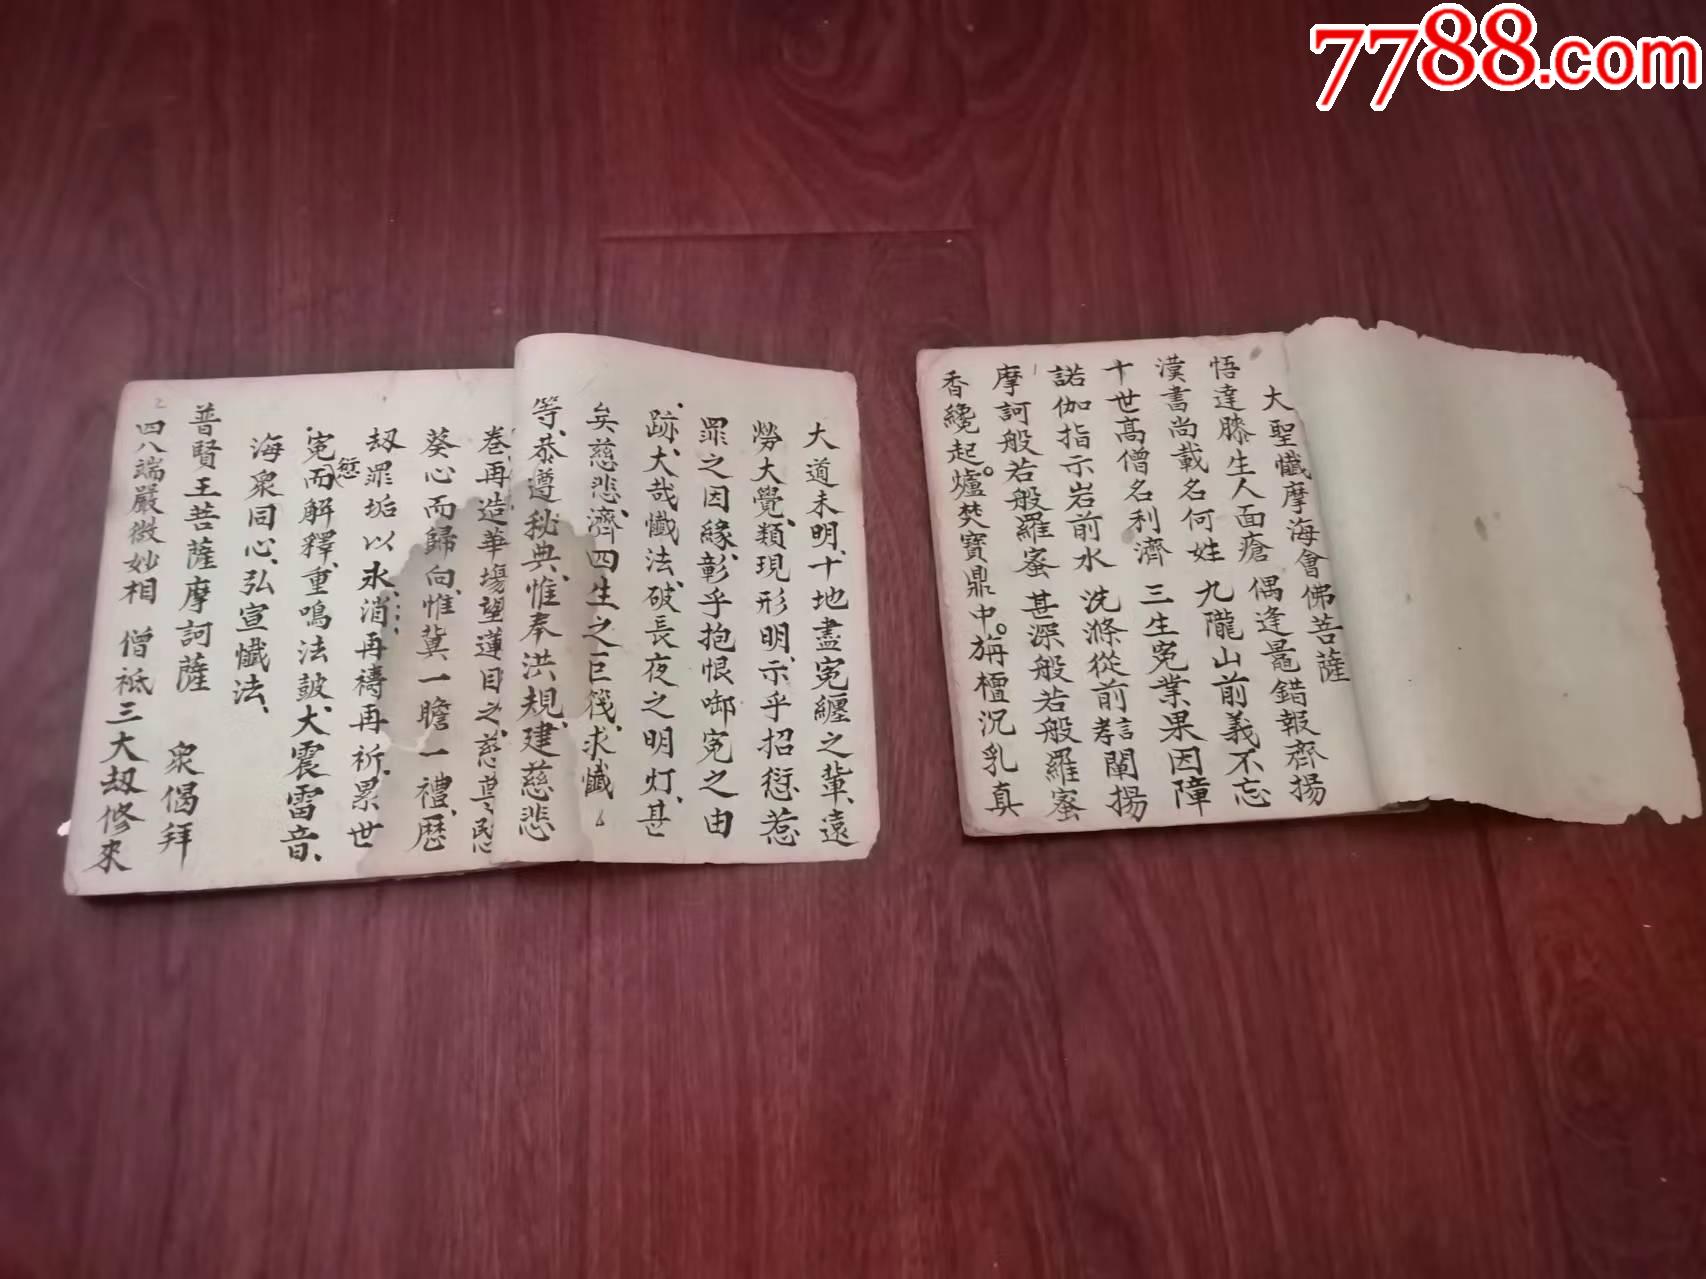 7788.com
大聖懺摩海會佛菩薩
悟達膝生人面瘡 偶逢鼂錯報齊揚
漢書尚載名何姓 九隴山前義不忘
十世高僧名利濟 三生寃業果因障
諾伽指示岩前水 洗滌從前孝言闡揚
摩訶般若般羅蜜 甚深般若般羅蜜
香纔起。爐焚寶鼎中。旃檀沉乳真
大道未明、十地盡寃纏之輩、遠
勞大覺、類現形明、示乎招愆、惹
罪之因緣、彰乎抱恨啣寃之由
跡、大哉懺法、破長夜之明灯、甚
矣慈悲、濟四生之巨筏、求懺
等、恭遵秘典、惟奉洪規、建慈悲
卷、再造華場望蓮目之慈尊、愍
葵心而歸向、惟冀一瞻一禮、歷
刼罪垢以氷消再禱再祈、累世
寃愆而解釋、重鳴法鼓、大震雷音、
海衆同心、弘宣懺法、
普賢王菩薩摩訶薩 衆偈拜
四八端嚴微妙相 僧祗三大刼修來